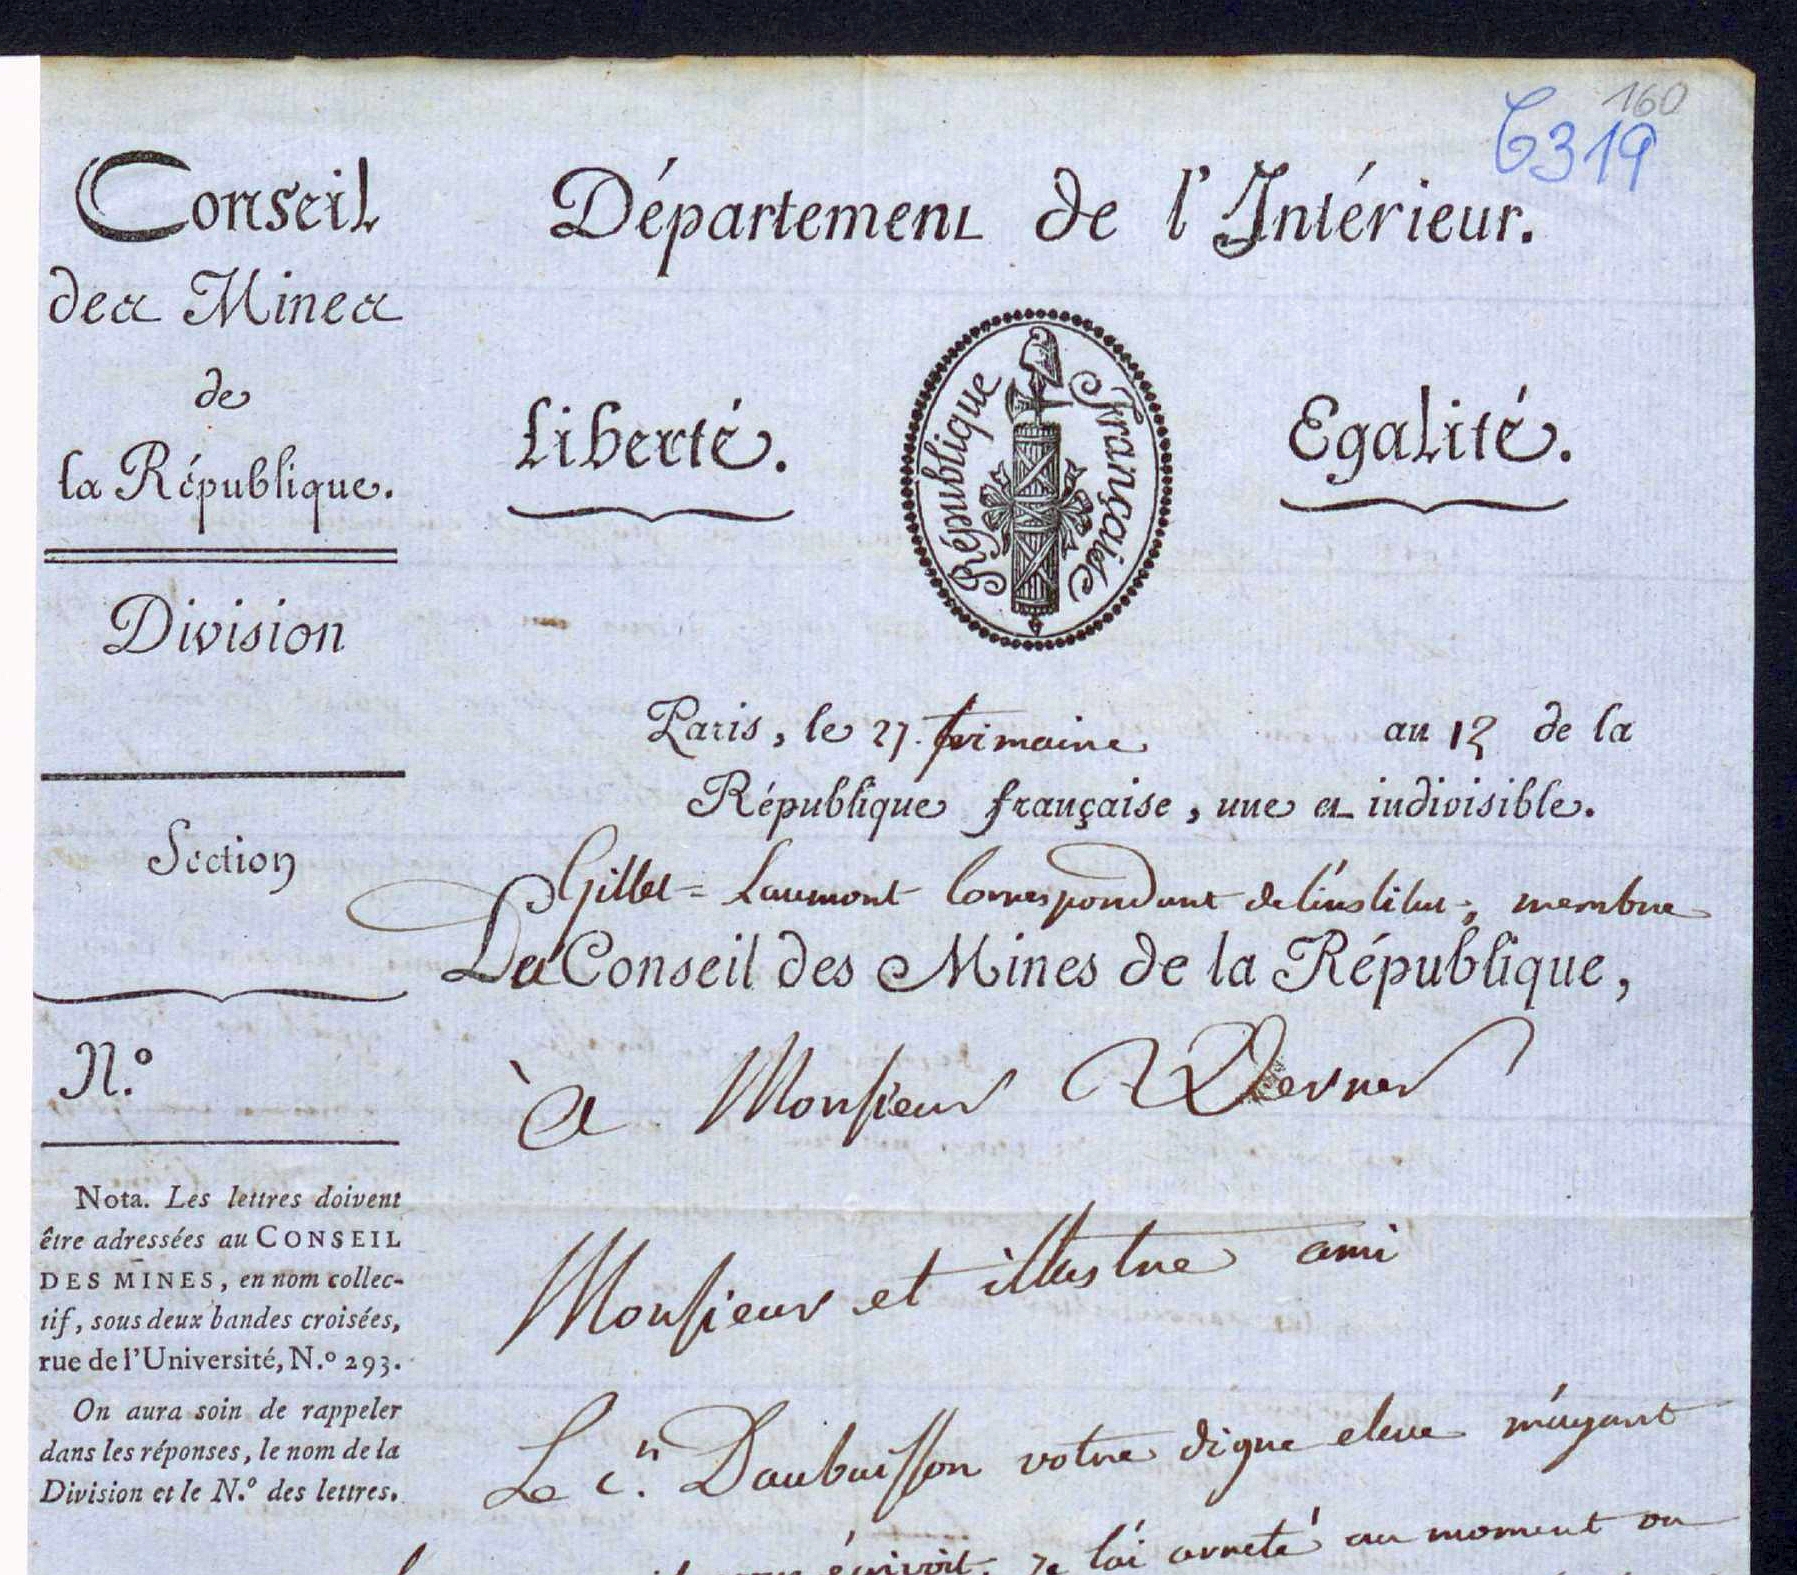 160
6319
Conseil
des Mines
de
la République.
Division
Section
N.º
Nota. Les lettres doivent
être adressées au CONSEIL
DES MINES, en nom collec-
tif, sous deux bandes croisées,
rue de l'Université, N.º 293.
On aura soin de rappeler
dans les réponses, le nom de la
Division et le N.º des lettres.
Département de l'Intérieur.
Liberté.
République Française
Egalité.
Paris, le 27. frimaire an 13 de la
République française, une et indivisible.
Gillet=Laumont Correspondant de l'institut, membre
Du Conseil des Mines de la République,
à Monsieur Werner
Monsieur et illustre ami
Le c.n Daubuisson votre digne eleve m'ayant
écrivoit, je l'ai arreté au moment ou